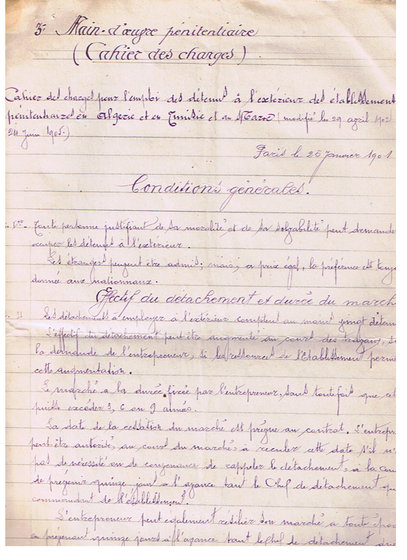 3° Main-d'œuvre pénitentiaire
(Cahier des charges)
Cahier des charges pour l'emploi des détenus à l'extérieur des établissements
pénitentiaires en Algérie et en Tunisie et au Maroc (modifié le 29 avril 1902
24 Juin 1905.)
Paris le 26 Janvier 1901
Conditions générales.
Toute personne justifiant de sa moralité et de sa solvabilité peut demander
occuper les détenus à l'extérieur.
Les étrangers peuvent être admis; mais, à prix égal, la préférence est
donné aux nationaux.
Effectif du détachement et durée du march
Les détachements à employer à l'extérieur comptent au moins vingt détenu
L'effectif du détachement peut être augmenté au cours des travaux, sur
la demande de l'entrepreneur, si les ressources de l'Etablissement perme
cette augmentation.
Le marché a la durée fixée par l'entrepreneur, sans toutefois que cel
puisse excéder 3, 6 ou 9 années.
La date de la cessation du marché est prévue au contrat. L'entrepr
peut être autorisé, au cours du marché, à reculer cette date s'il n'
pas de nécessité ou de convenance de rappeler le détachement, à la con
de prévenir quinze jours à l'avance tant le Chef de détachement que
commandant de l'établissement.
L'entrepreneur peut également résilier son marché à toute époq
en prévenant quinze jours à l'avance tant le Chef de détachement